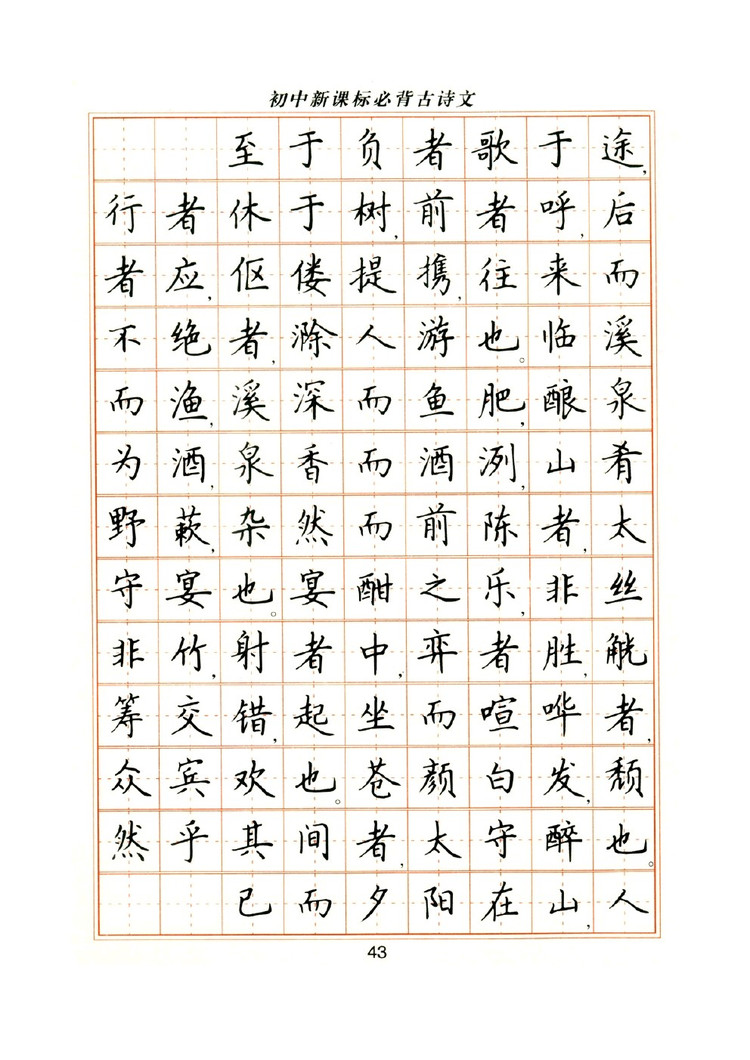 初中新课标必背古诗文
至于负者歌于途,
行者休于树,前者呼,后
者应,伛偻提携,往来而
不绝者,滁人游也。临溪
而渔,溪深而鱼肥,酿泉
为酒,泉香而酒洌,山肴
野蔌,杂然而前陈者,太
守宴也。宴酣之乐,非丝
非竹,射者中,弈者胜,觥
筹交错,起坐而喧哗者,
众宾欢也。苍颜白发,颓
然乎其间者,太守醉也。
已而夕阳在山,人
43